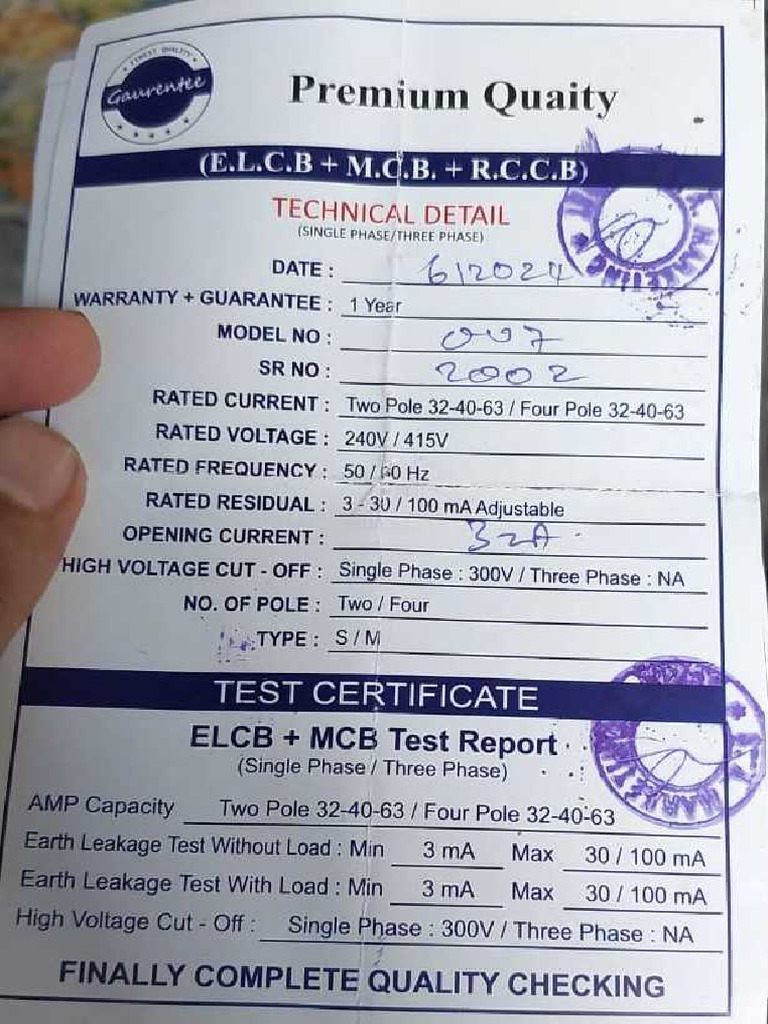 FINEST QUALITY
Gaurentee
Premium Quaity
(E.L.C.B + M.C.B. + R.C.C.B)
TECHNICAL DETAIL
(SINGLE PHASE/THREE PHASE)
DATE : 6/2024
WARRANTY + GUARANTEE : 1 Year
MODEL NO : 007
SR NO : 2002
RATED CURRENT : Two Pole 32-40-63 / Four Pole 32-40-63
RATED VOLTAGE : 240V / 415V
RATED FREQUENCY : 50 / 60 Hz
RATED RESIDUAL : 3 - 30 / 100 mA Adjustable
OPENING CURRENT : 32A
HIGH VOLTAGE CUT - OFF : Single Phase : 300V / Three Phase : NA
NO. OF POLE : Two / Four
TYPE : S / M
MARKETING
TEST CERTIFICATE
ELCB + MCB Test Report
(Single Phase / Three Phase)
AMP Capacity Two Pole 32-40-63 / Four Pole 32-40-63
Earth Leakage Test Without Load : Min 3 mA Max 30 / 100 mA
Earth Leakage Test With Load : Min 3 mA Max 30 / 100 mA
High Voltage Cut - Off : Single Phase : 300V / Three Phase : NA
FINALLY COMPLETE QUALITY CHECKING